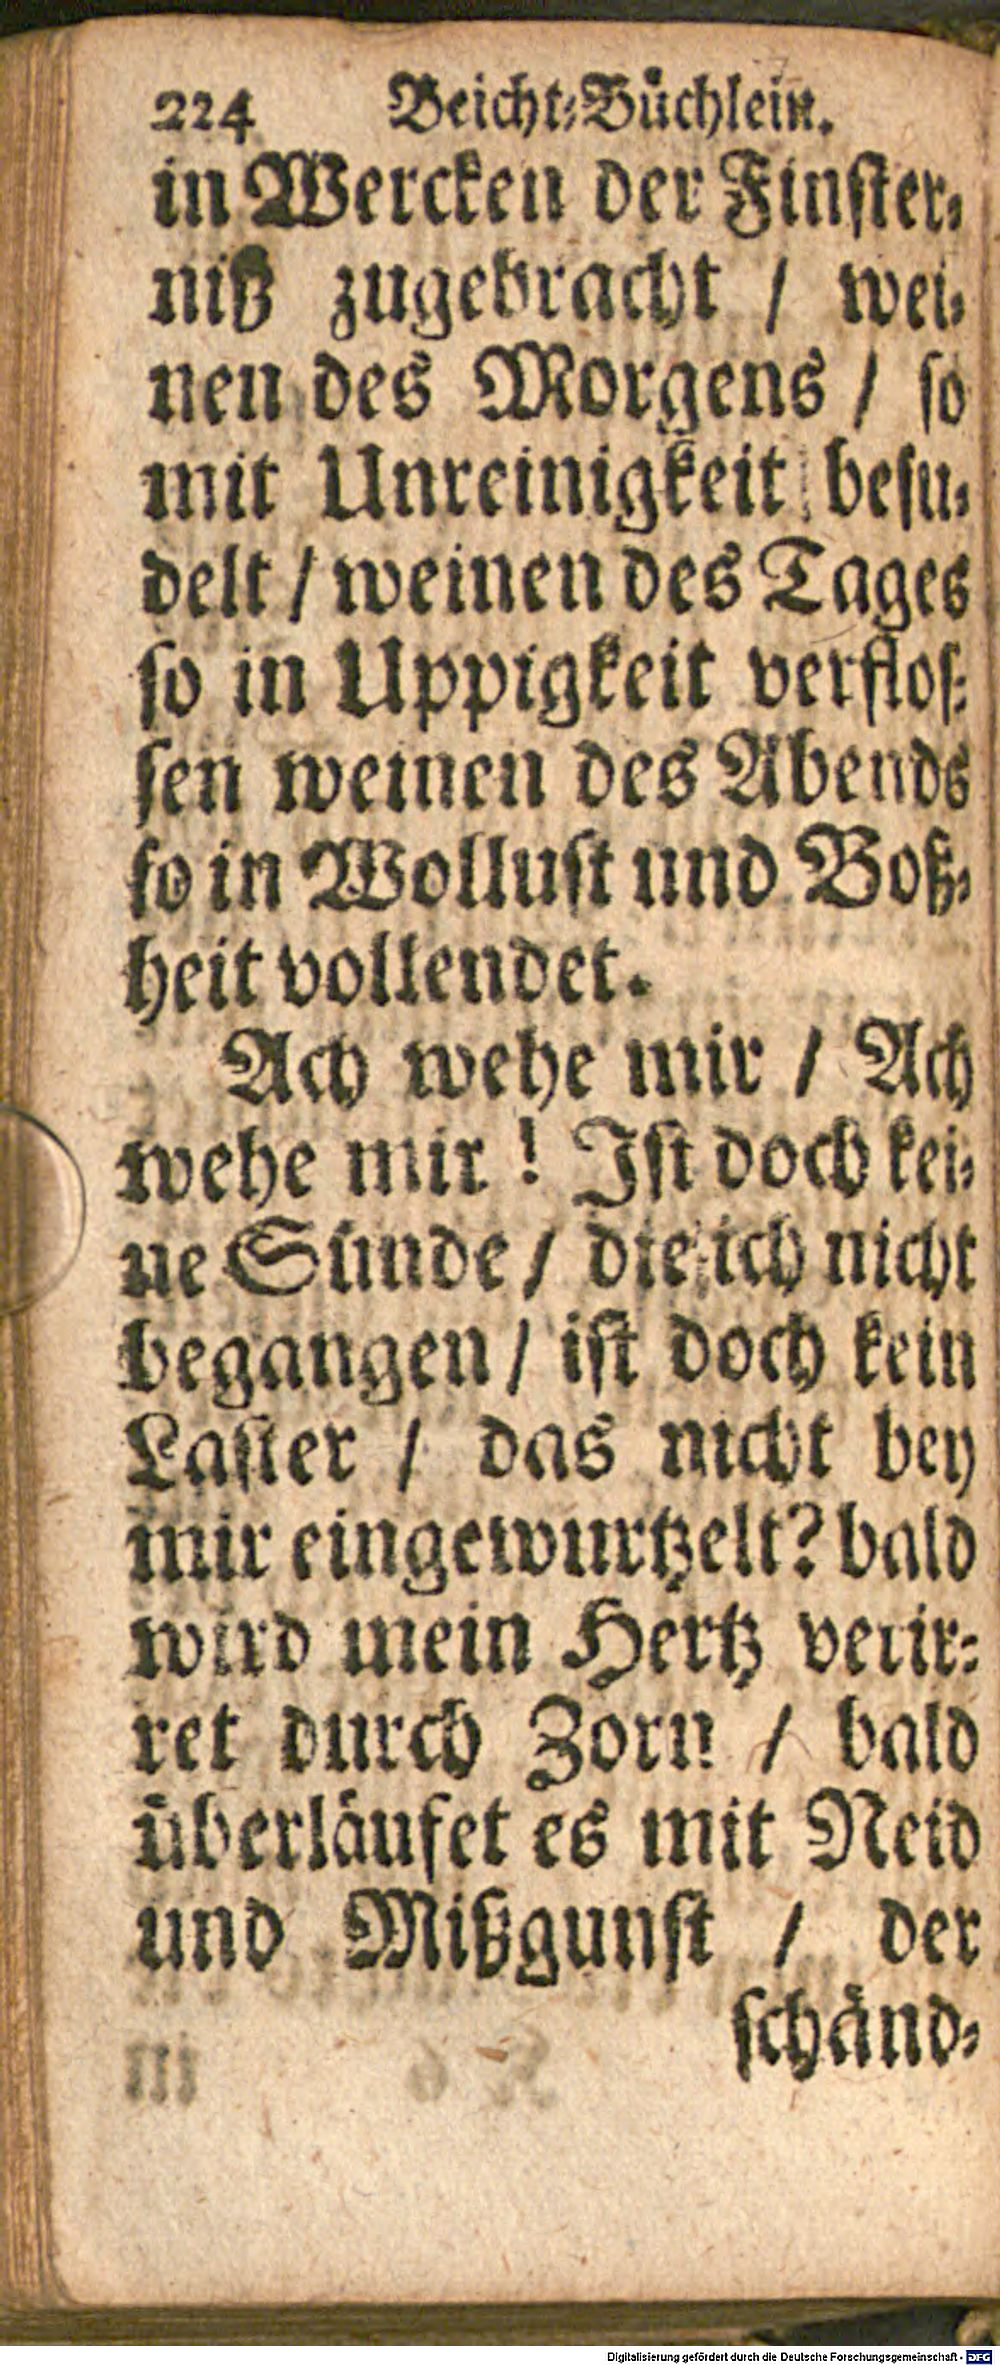 224 Beicht-Büchlein.
in Wercken der Finster-
niß zugebracht / wei-
nen des Morgens / so
mit Unreinigkeit besu-
delt / weinen des Tages
so in Uppigkeit verflos-
sen weinen des Abends
so in Wollust und Boß-
heit vollendet.
Ach wehe mir / Ach
wehe mir ! Ist doch kei-
ne Sünde / die ich nicht
begangen / ist doch kein
Laster / das nicht bey
mir eingewurtzelt? bald
wird mein Hertz verir-
ret durch Zorn / bald
überläufet es mit Neid
und Mißgunst / der
schänd-
Digitalisierung gefördert durch die Deutsche Forschungsgemeinschaft - DFG